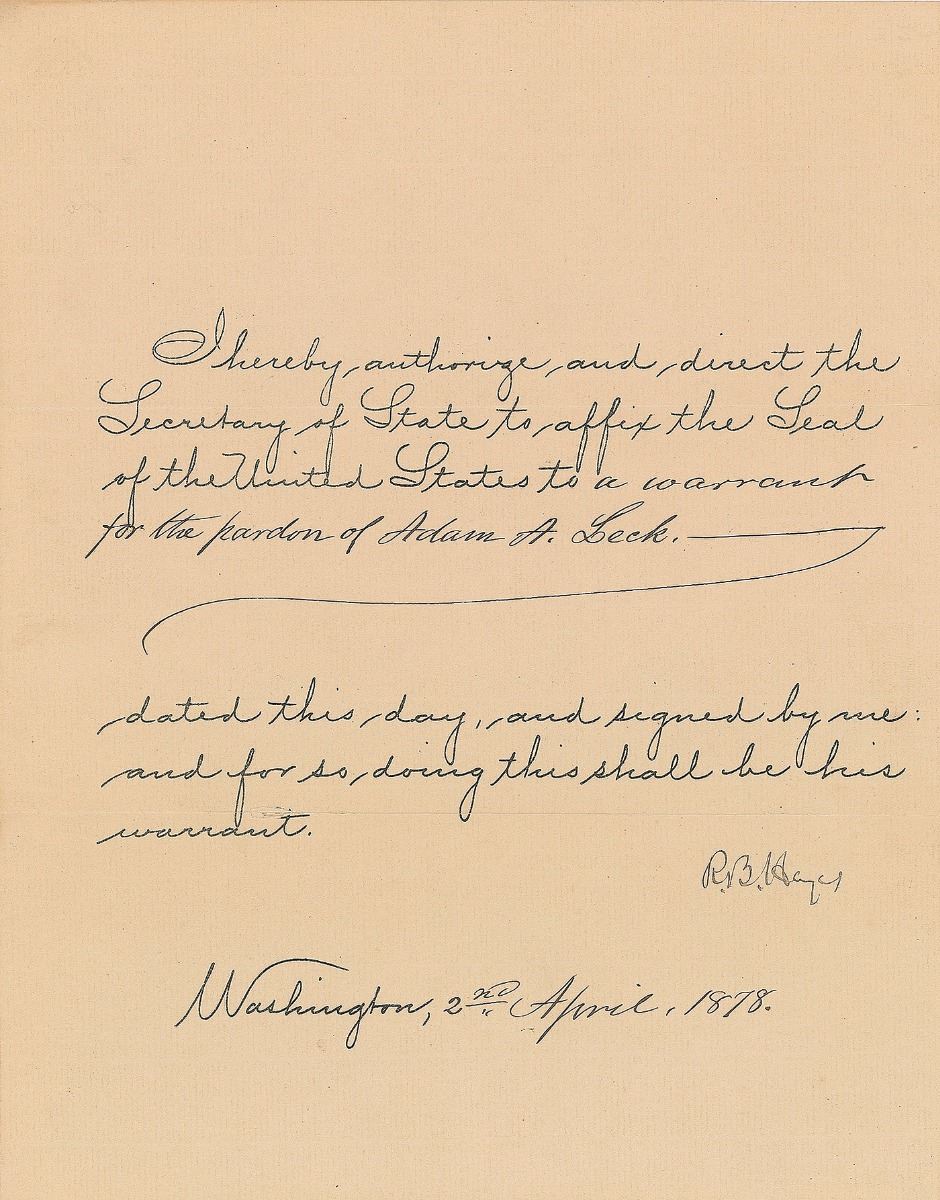 I hereby authorize and direct the
Secretary of State to affix the Seal
of the United States to a warrant
for the pardon of Adam A. Leck.
dated this day, and signed by me:
and for so doing this shall be his
warrant.
R. B. Hayes
Washington, 2nd April, 1878.